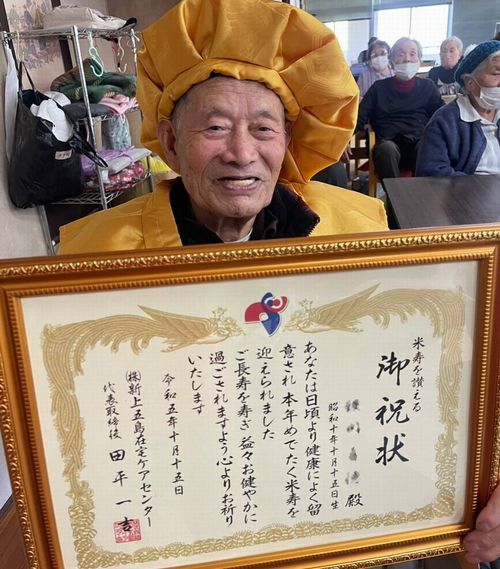 米寿を讃える
御祝状
殿
昭和十年十月十五日生
あなたは日頃より健康によく留
意され 本年めでたく米寿を
迎えられました
ご長寿を寿ぎ 益々お健やかに
過ごされますよう心よりお祈り
いたします
令和五年十月十五日
㈱新上五島在宅ケアセンター
代表取締役 田平一吉